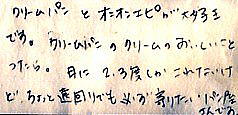 クリームパン と オニオンエピ が 大好き
です。 クリームパン の クリーム の おいしいこと
ったら。 月に 2.3度しか これないけ
ど、ちょっと遠回りでも 必ず 寄りたい パン屋
さんです。